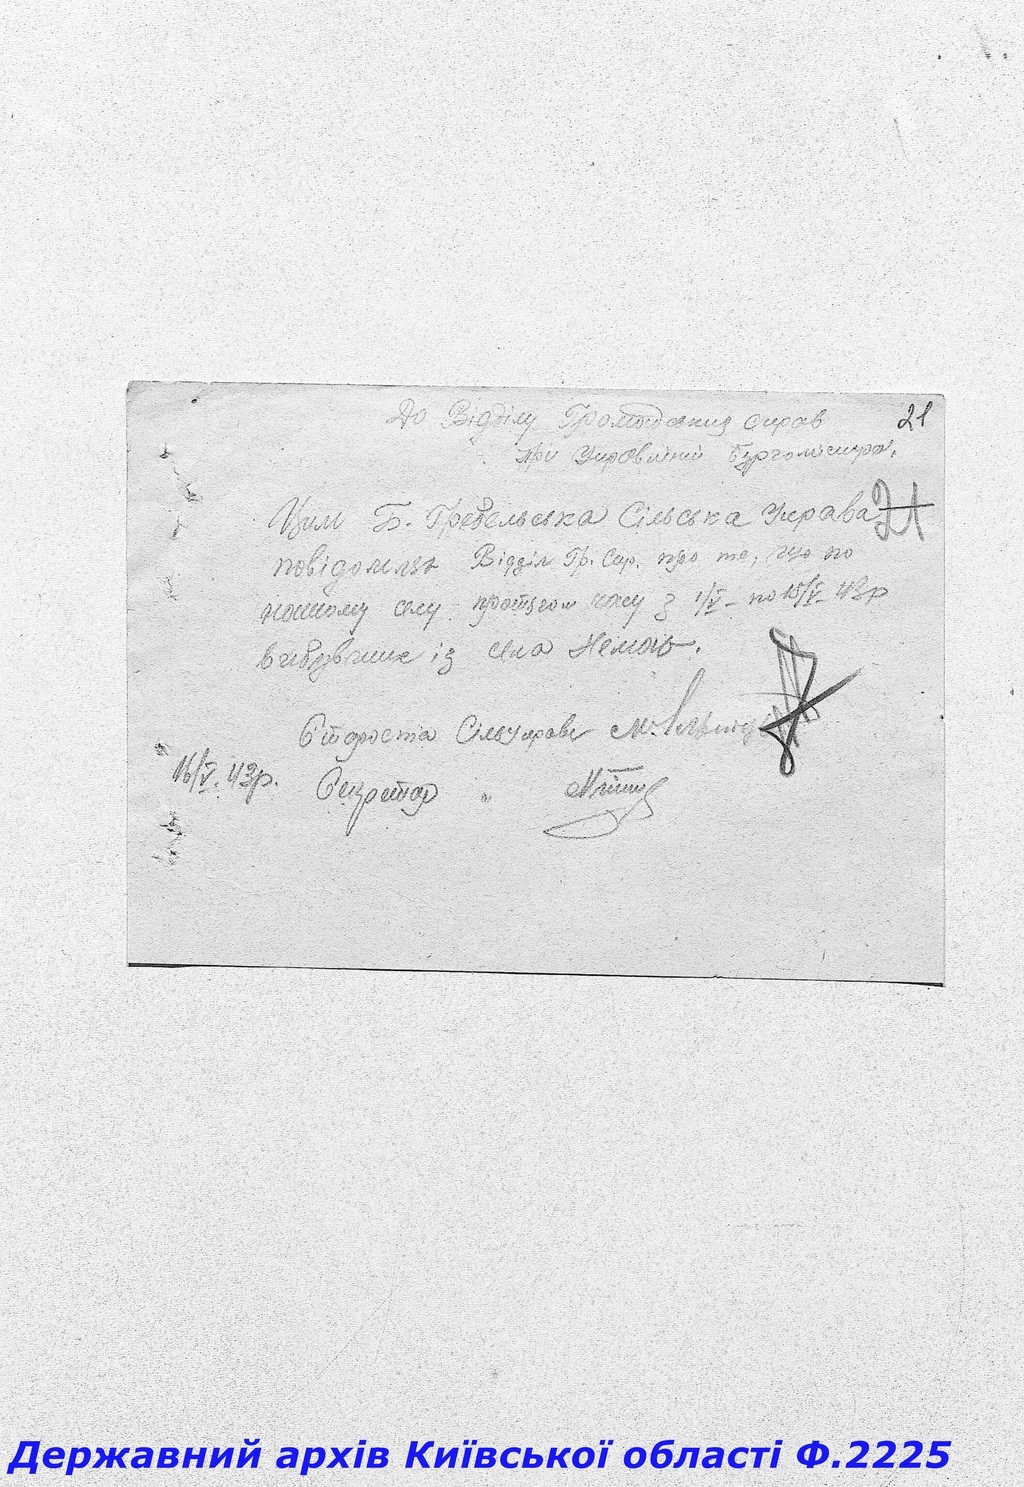 До Відділу Громадських справ
21
при Управлінні Бургомістра.
Цим Б. Гребельська Сільська Управа
21
повідомляє Відділ Гр. Спр. про те, що по
нашому селу протягом часу з 1/V – по 15/V 43р
вибувших із села Немає.
Староста Сільуправи
16/V. 43р.
Секретар "
Державний архів Київської області Ф.2225